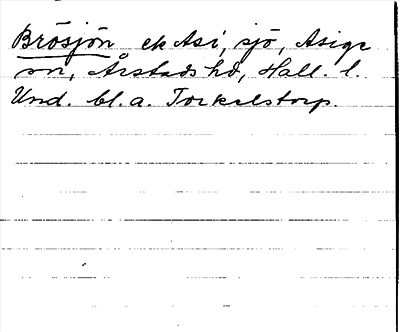 Brösjön ek Asi, sjö, Asige
sn, Årstads hd, Hall. l.
Und. bl. a. Torkelstorp.